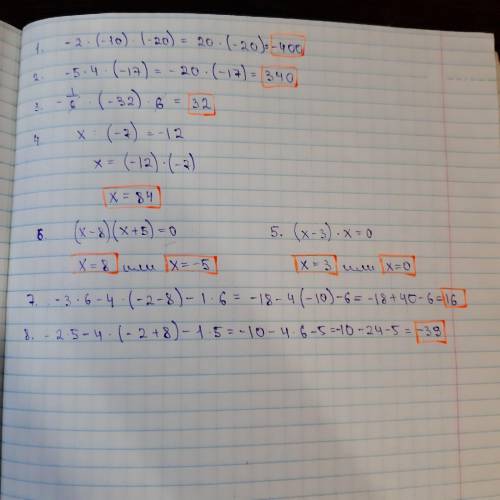 1. -2 · (-10) · (-20) = 20 · (-20) = -400
2. -5 · 4 · (-17) = -20 · (-17) = 340
3. - 1/6 · (-32) · 6 = 32
4. x : (-7) = -12
x = (-12) · (-7)
x = 84
6. (x-8)(x+5)=0 5. (x-3) · x=0
x=8 или x=-5 x=3 или x=0
7. -3 · 6 - 4 · (-2-8) - 1 · 6 = -18-4(-10)-6=-18+40-6=16
8. -2 · 5 - 4 · (-2+8) - 1 · 5 = -10-4 · 6-5=-10-24-5=-39